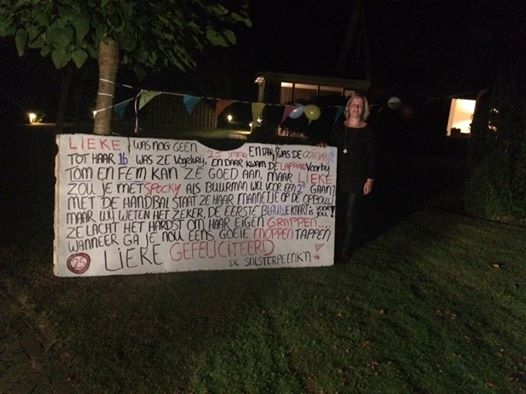 LIEKE WAS NOG GEEN 23 JAAR EN DAAR WAS DE
TOT HAAR 16 WAS ZE VOGELVRIJ, EN DAAR KWAM DE LAFAAR VOORBIJ
TOM EN FEM KAN ZE GOED AAN, MAAR LIEKE
ZOU JE MET SPOCKY ALS BUURMAN WEL VOOR EEN 2E GAAN?
MET DE HANDBAL STAAT ZE HAAR MANNETJE OP DE OPBOUW
MAAR WIJ WETEN HET ZEKER, DE EERSTE BLAUWE KAART IS VOOR JOU!
ZE LACHT HET HARDST OM HAAR EIGEN GRAPPEN...
WANNEER GA JE NOU EENS GOEIE MOPPEN TAPPEN
25 LIEKE GEFELICITEERD
DE